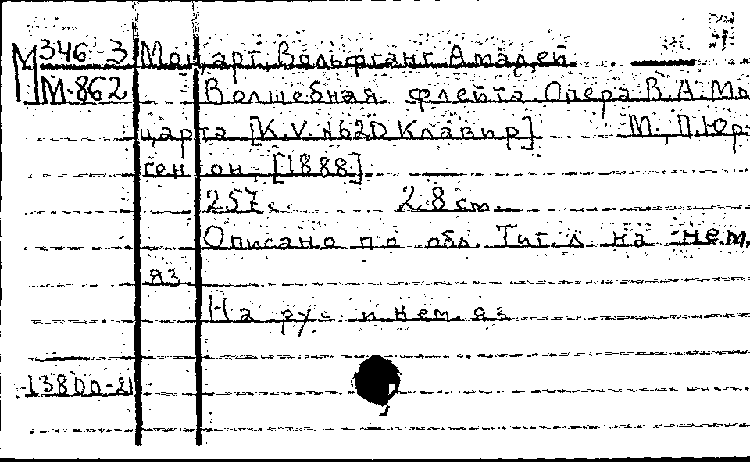 М 346-3 Моцарт, Вольфганг Амадей
М-862 Волшебная флейта. Опера В. А. Мо
царта [K.V. №620 Клавир] М., П. Юр-
генсон, [1888].
257 с. 28 см.
Описано по обл. Тит. л. на нем.
яз
На рус. и нем. яз
13800-81